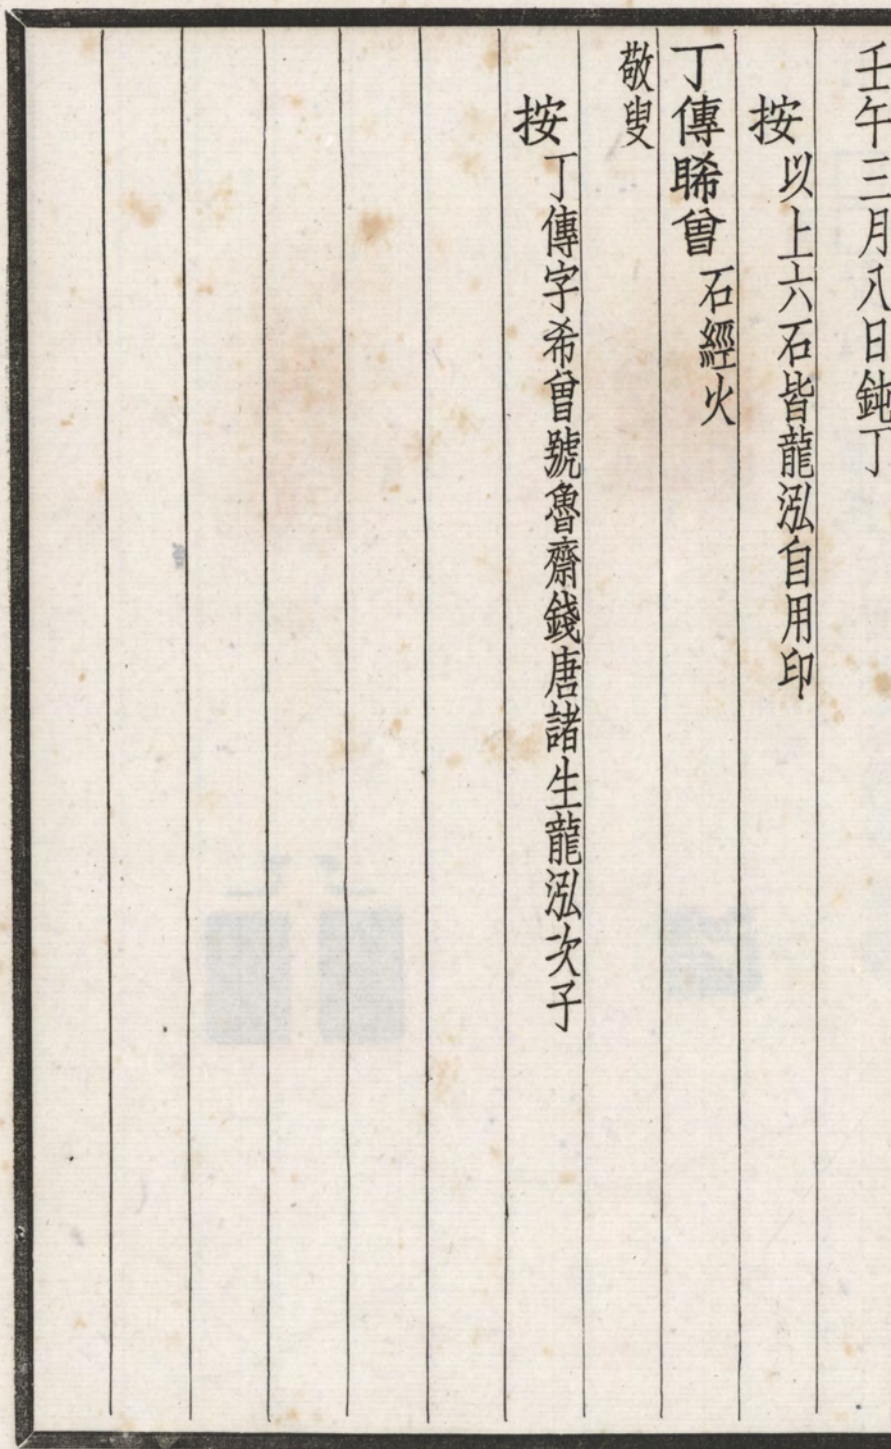 壬午三月八日鈍丁
按以上六石皆龍泓自用印
丁傳睎曾 石經火
敬叟
按丁傳字希曾號魯齋錢唐諸生龍泓次子